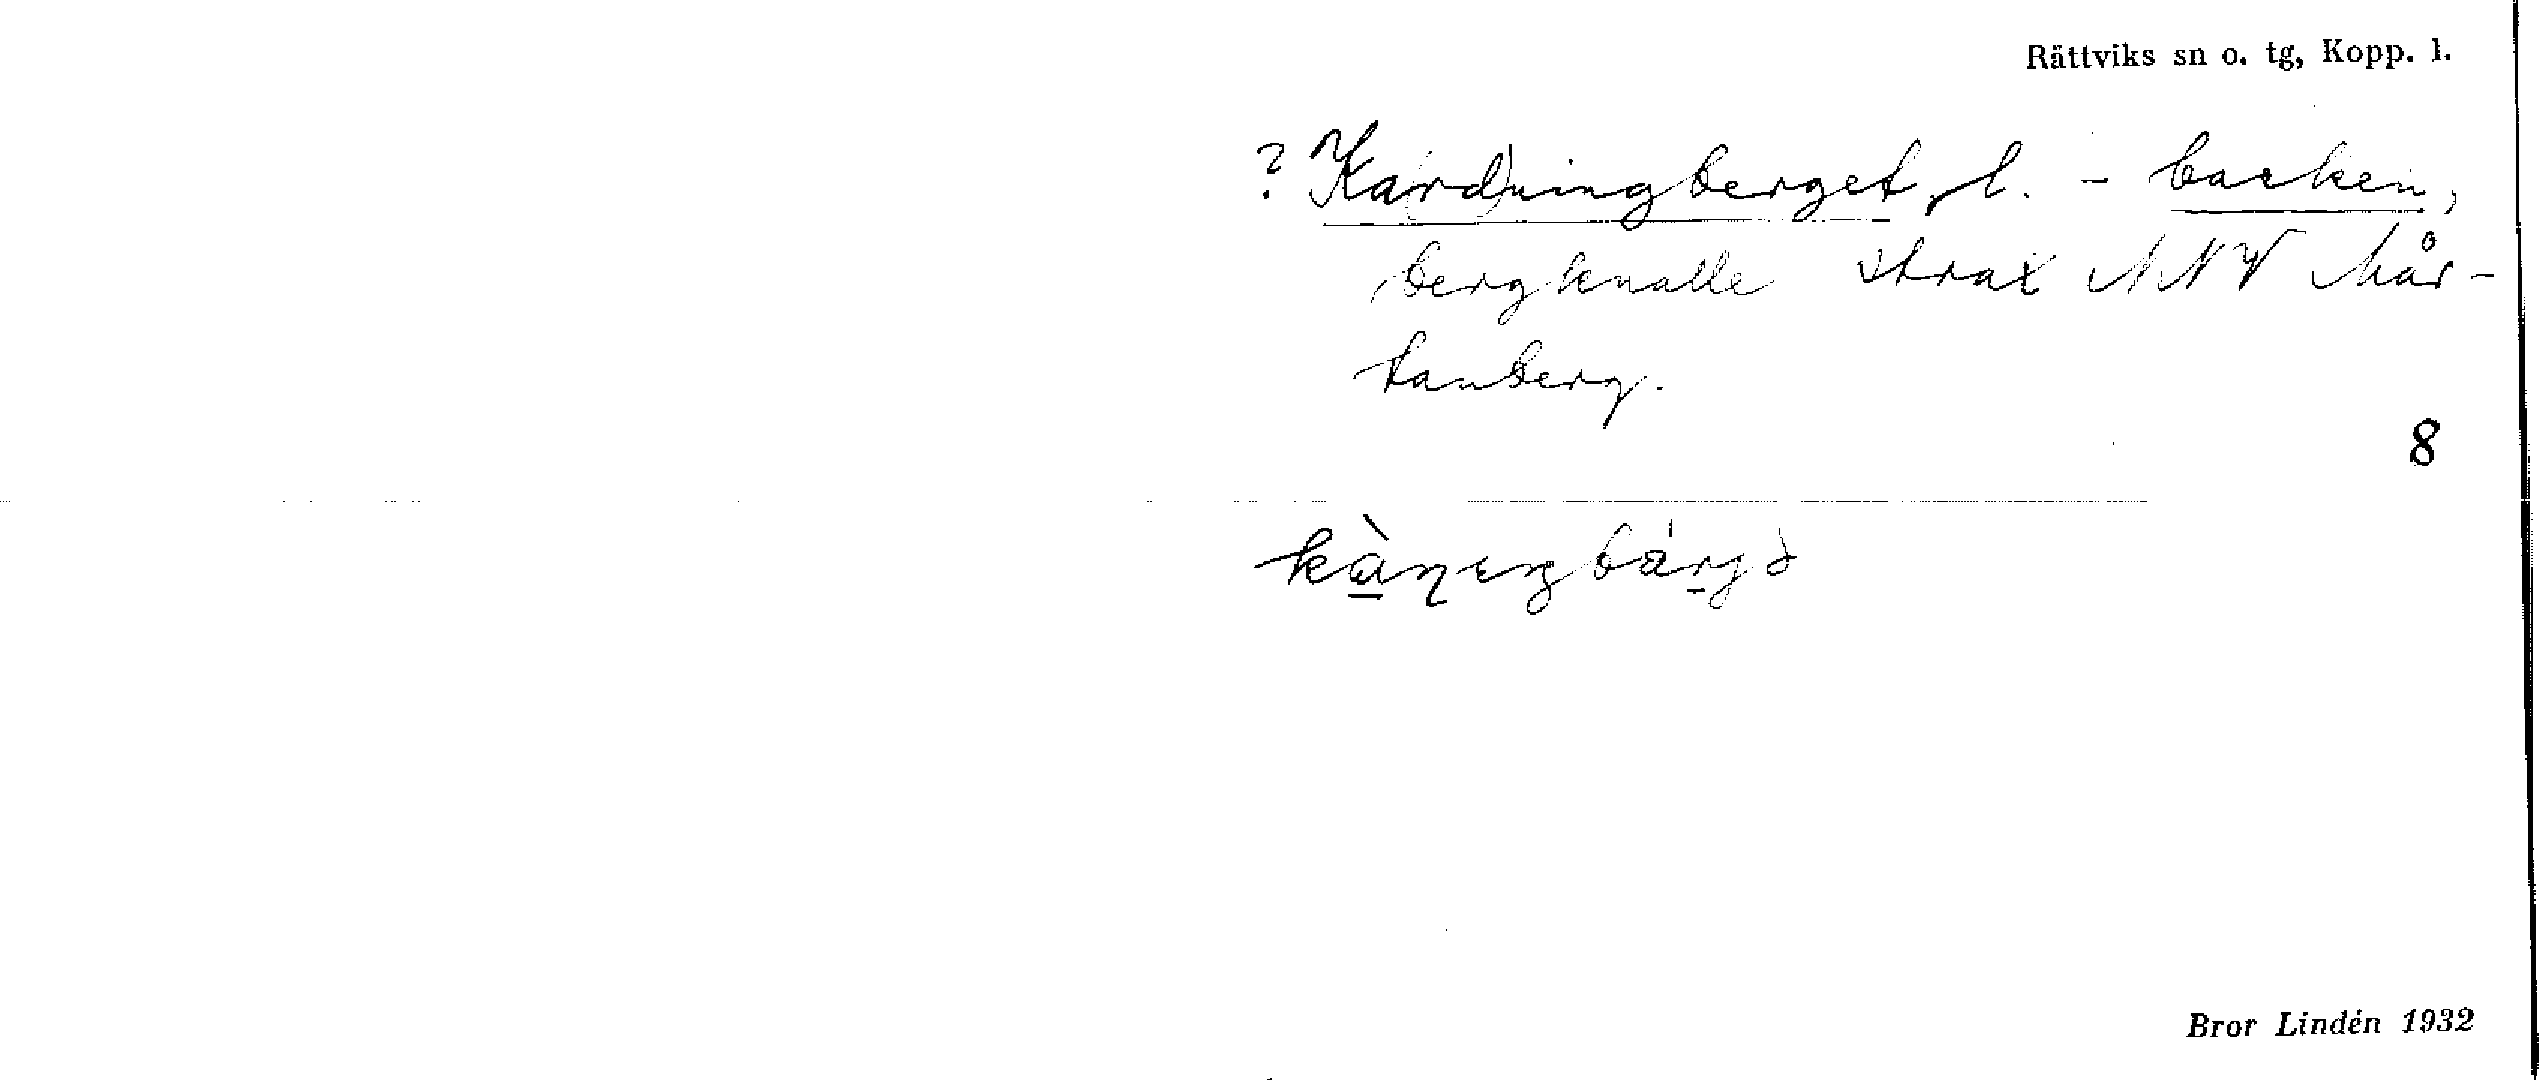 Rättviks sn o. tg, Kopp. l.
? Ka(rd)ningberget, l. - backen,
bergknalle strax NNV Mår-
tanberg.
8
Bror Lindén 1932